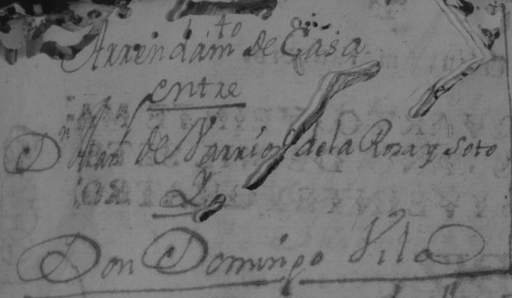 Arrendam.to de Casa
entre
D.n Juan de Varrios de la Rosa y Soto
Y
Don Domingo Vila